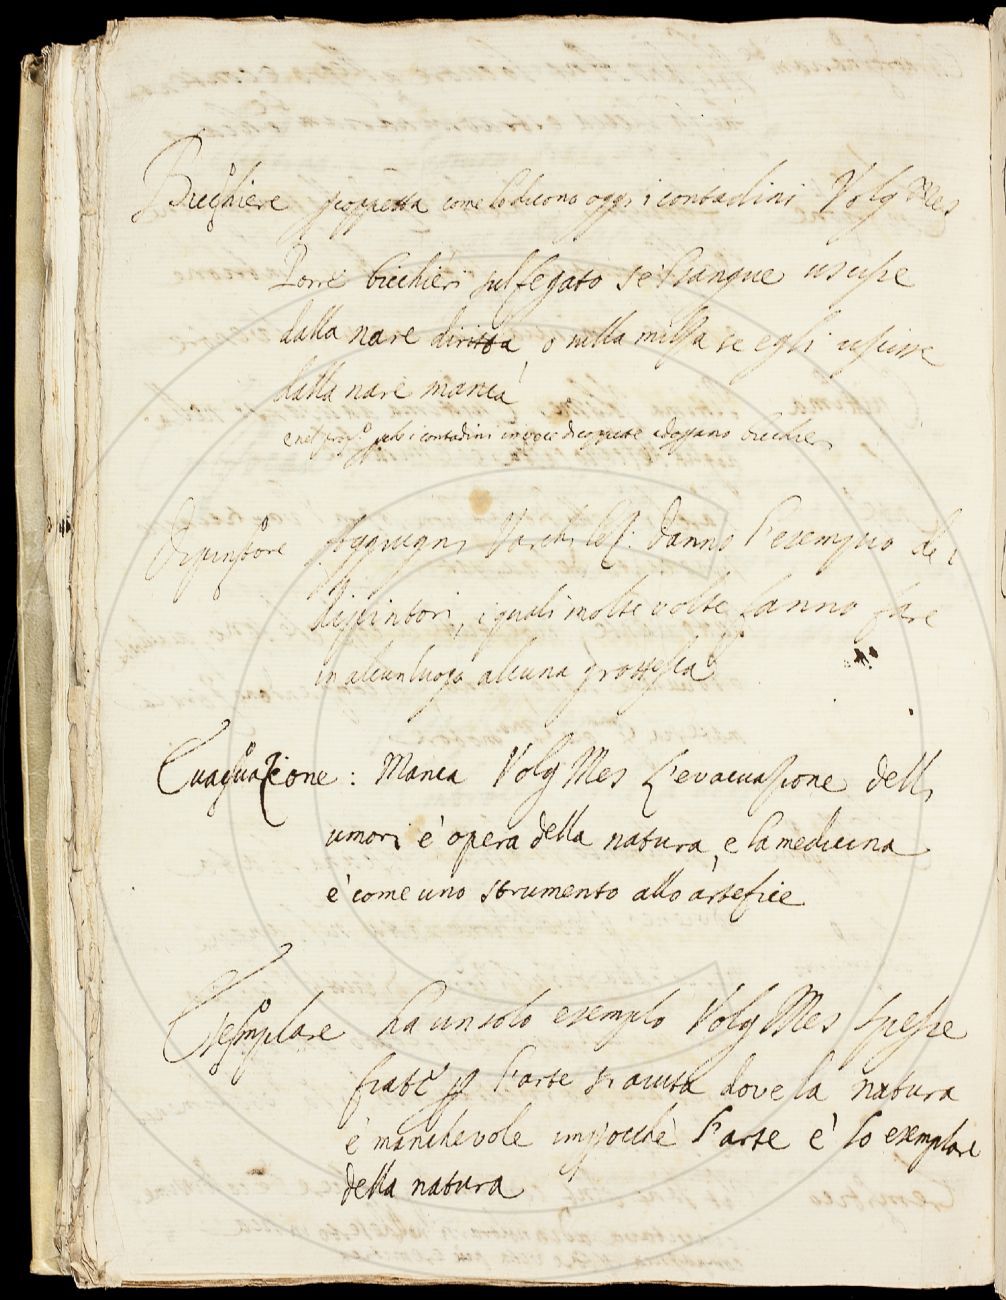 Bicchiere coppetta come lo dicono oggi i contadini Volg Mes
Porre bicchieri sul fegato se 'l sangue uscisse
dalla nare diritta, o nella milsa se egli uscisse
dalla nare manca
i contadini invece di coppette adoprano bicchieri
Dipintore Aggiugni Varchi danno l'esempio de i
dipintori, i quali molte volte fanno fare
in alcun luogo alcuna grottesca
Evacuazione: Manca Volg Mes L'evacuazione delli
umori è opera della natura, e la medicina
è come uno strumento allo artefice
Esemplare ha un solo esempio Volg Mes Spesse
fiate l'arte si aiuta dove la natura
è manchevole impʒocchè l'arte è lo exemplare
della natura